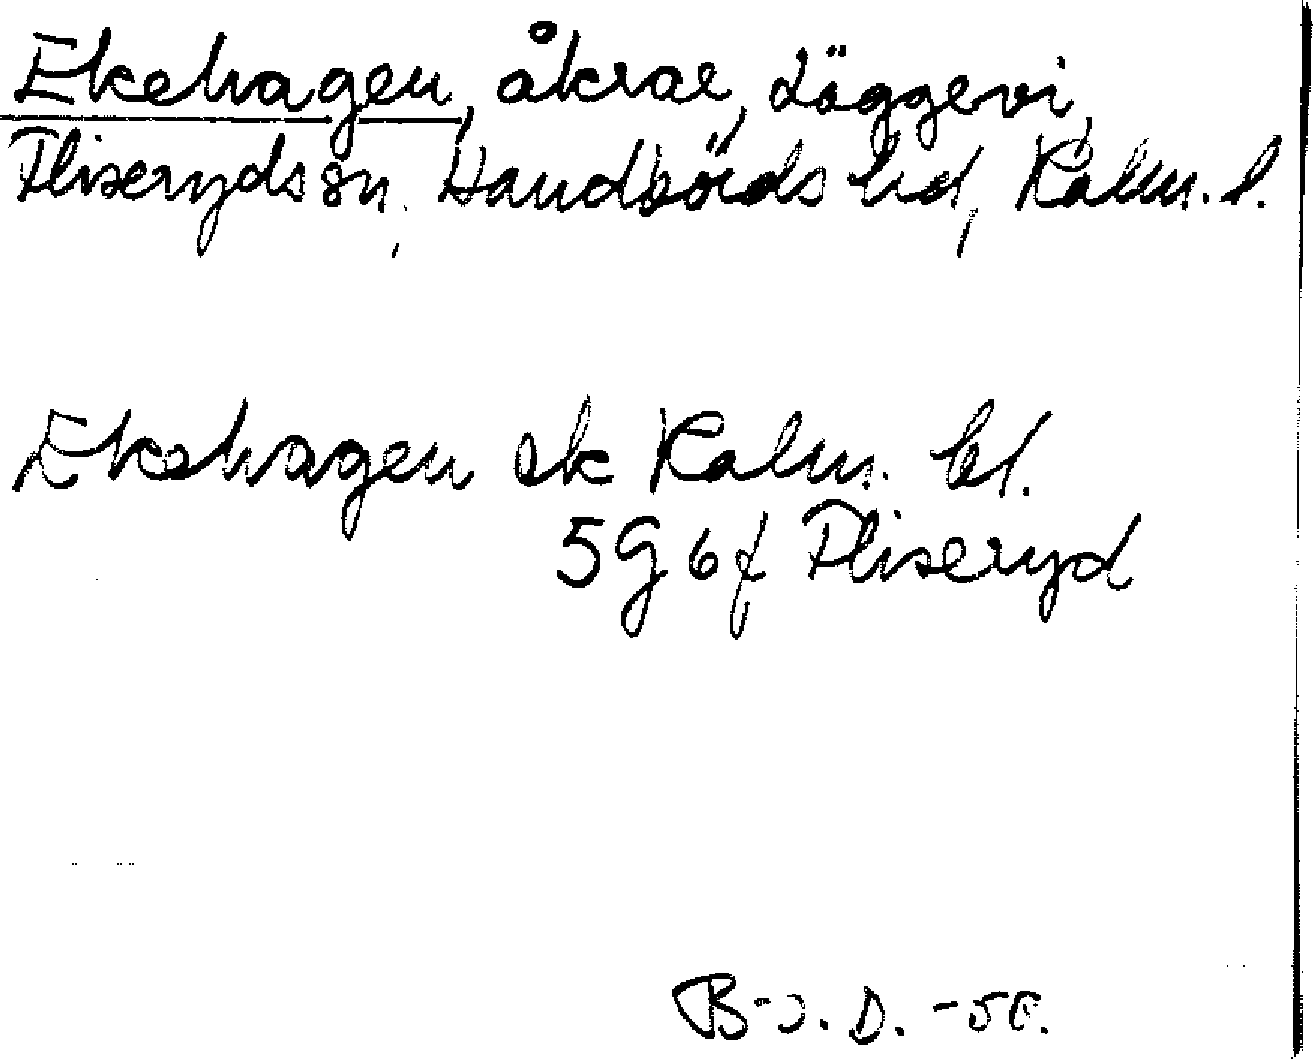 Ekehagen, åkrar, Löggevi,
Fliseryds sn, Handbörds hd, Kalm. l.
Ekehagen ek Kalm. bl.
5G6f Fliseryd
B-J. D. -56.